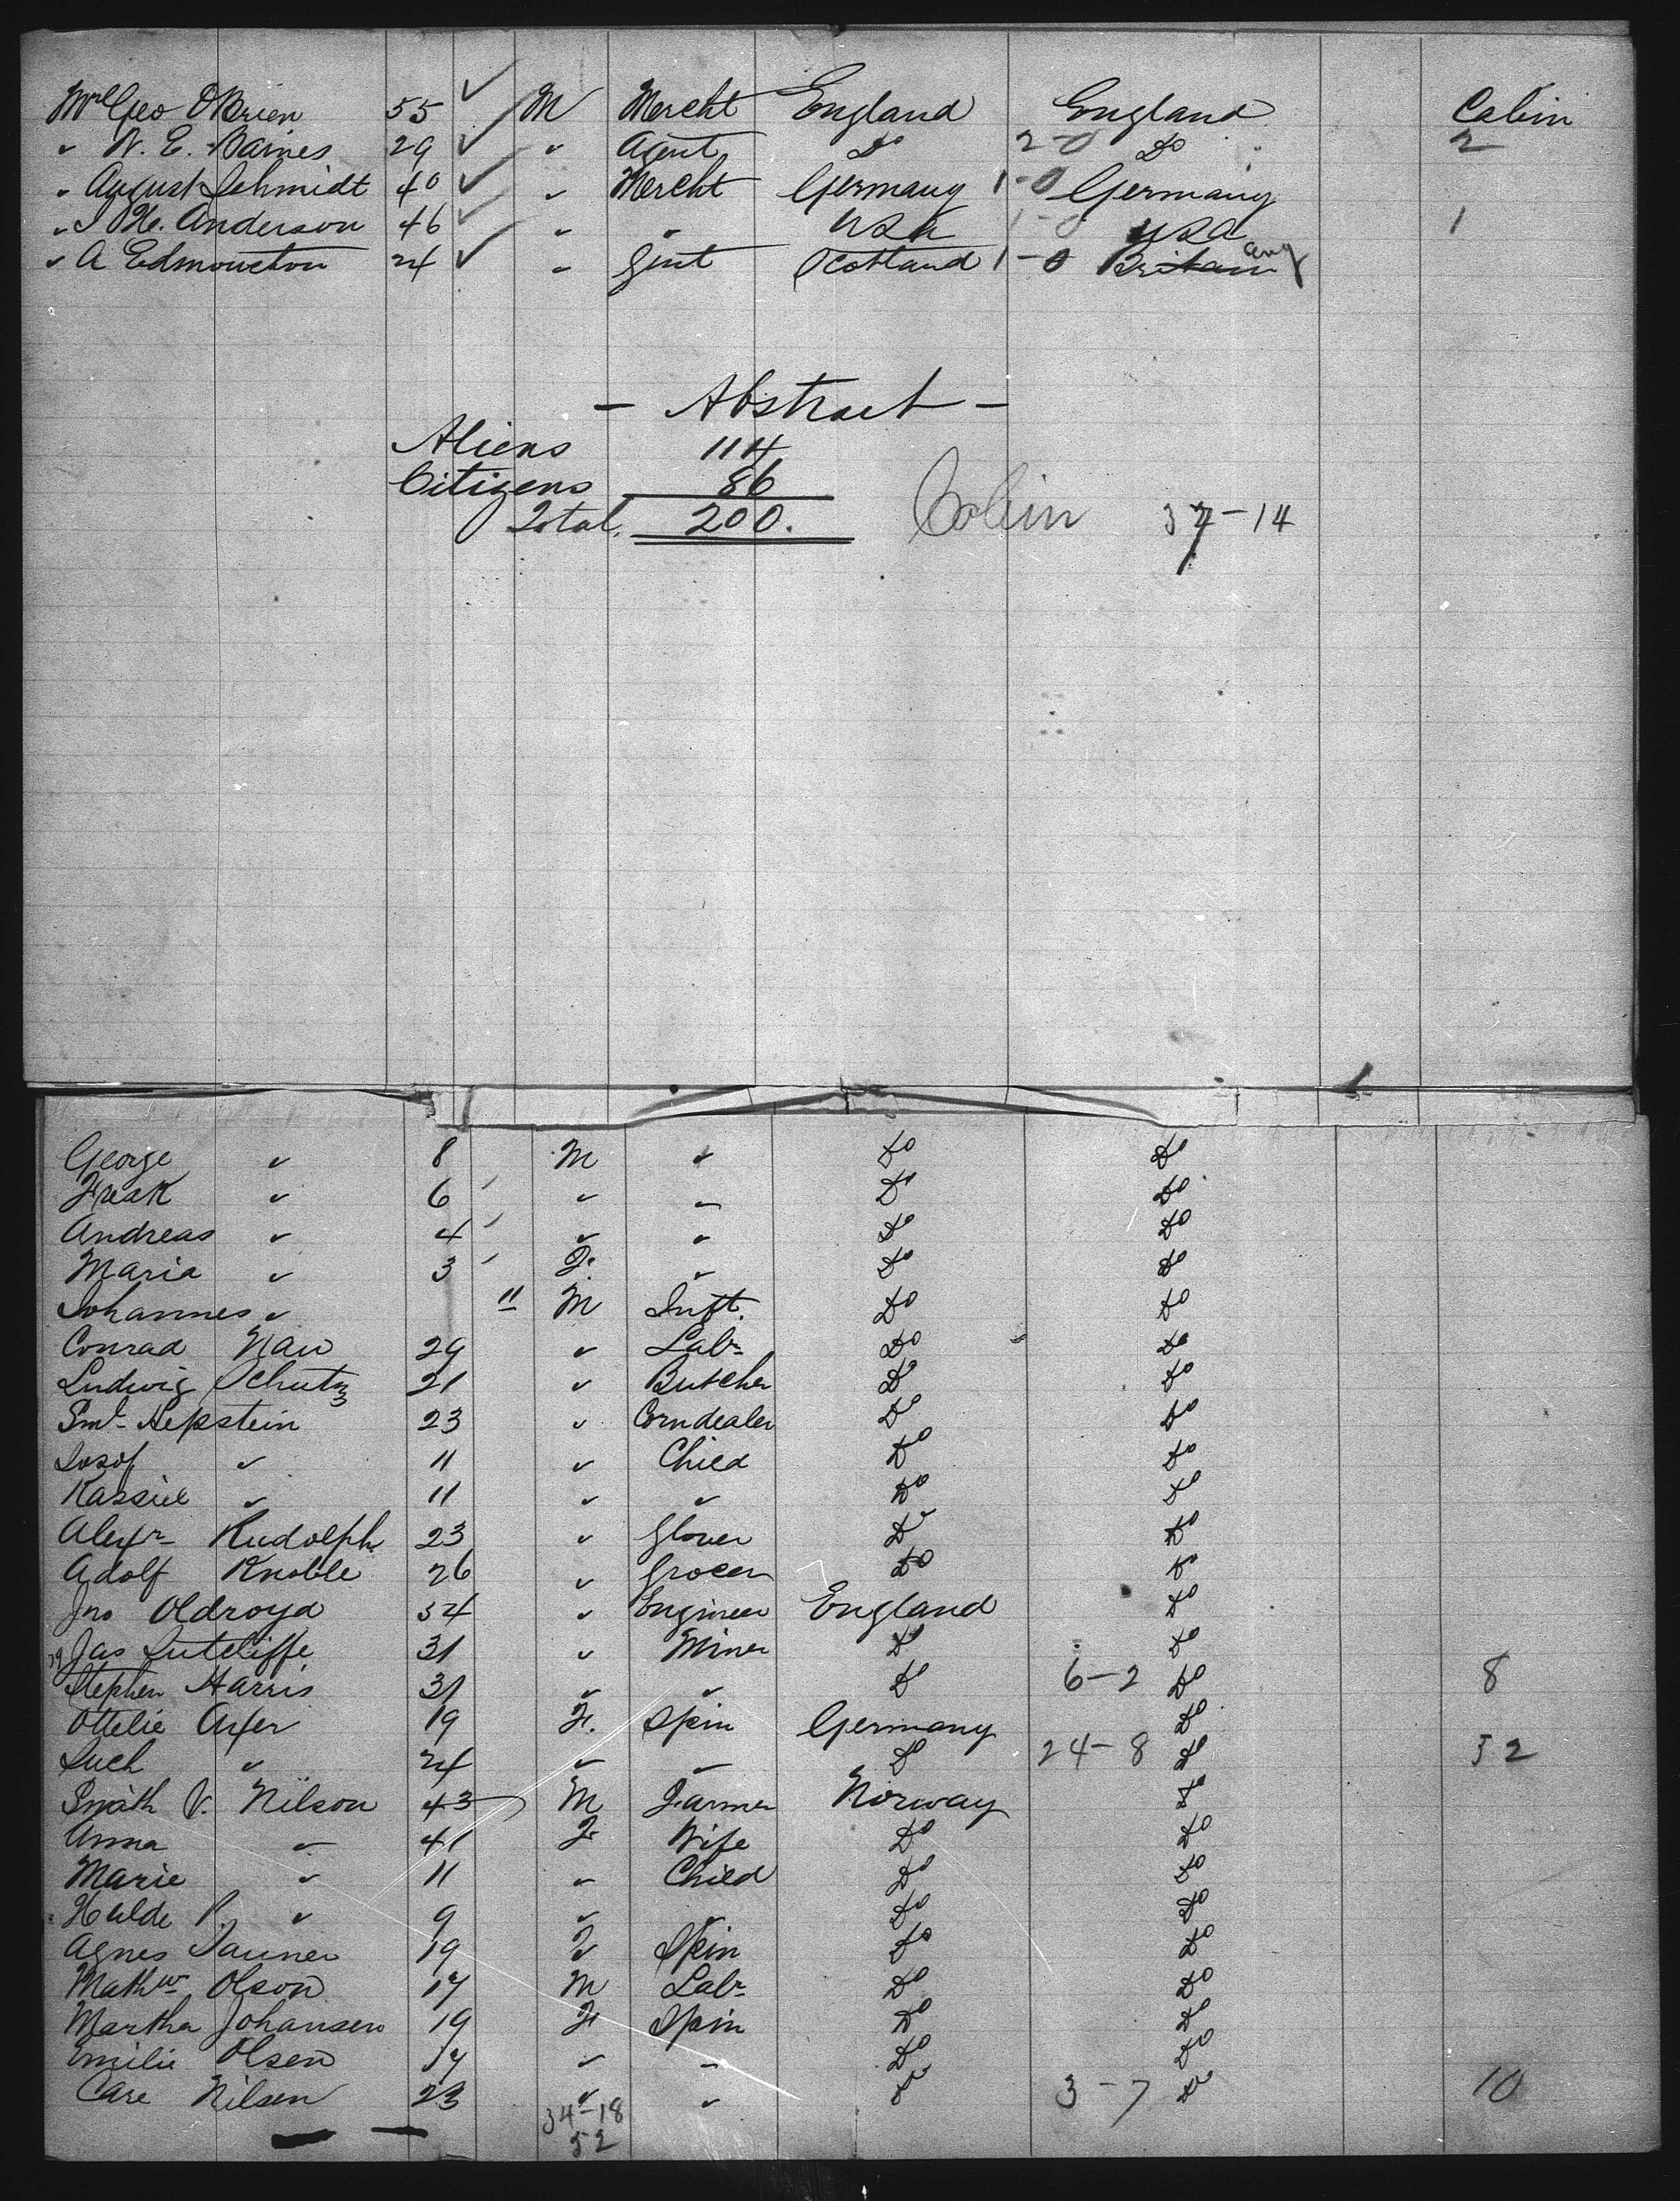 Mr Geo O'Brien 55 M Mercht England England Cabin
" W. E. Baines 29 " Agent Do 2-0 Do 2
" August Schmidt 40 " Mercht Germany 1-0 Germany
" J H. Anderson 46 " " USA 1-0 USA 1
" A Edmonston 24 " Gent Scotland 1-0 Britain
- Abstract -
Aliens 114
Citizens 86
Total. 200. Cabin 37-14
George " 8 M " Do Do
" 6 " " Do Do
Andreas " 4 " " Do Do
Maria " 3 F. " Do Do
Johannes " 11 M Inft. Do Do
Conrad Nau 29 " Labr Do Do
Ludwig Schutz 21 " Butcher Do Do
Sml Hepstein 23 " Corndealer Do Do
Josef " 11 " Child Do Do
Kassiel " 11 " " Do Do
Alexr Rudolph 23 " Glover Do Do
Adolf Knoble 26 " Grocer Do Do
Jno Oldroyd 34 " Engineer England Do
Jas Sutcliffe 31 " Miner Do Do
Stephen Harris 31 " " Do 6-2 Do 8
Ottelie 19 F. Spin Germany Do
" 24 " " Do 24-8 Do 32
V. Nilson 43 M Farmer Norway Do
Anna " 41 F Wife Do Do
Marie " 11 " Child Do Do
Hulde P. " 9 " " Do Do
Agnes 19 F Spin Do Do
Mathw Olson 17 M Labr Do Do
Martha Johansen 19 F Spin Do Do
Emilie Olsen 17 " " Do Do
Care Nilsen 23 " " Do 3-7 Do 10
34-18
52